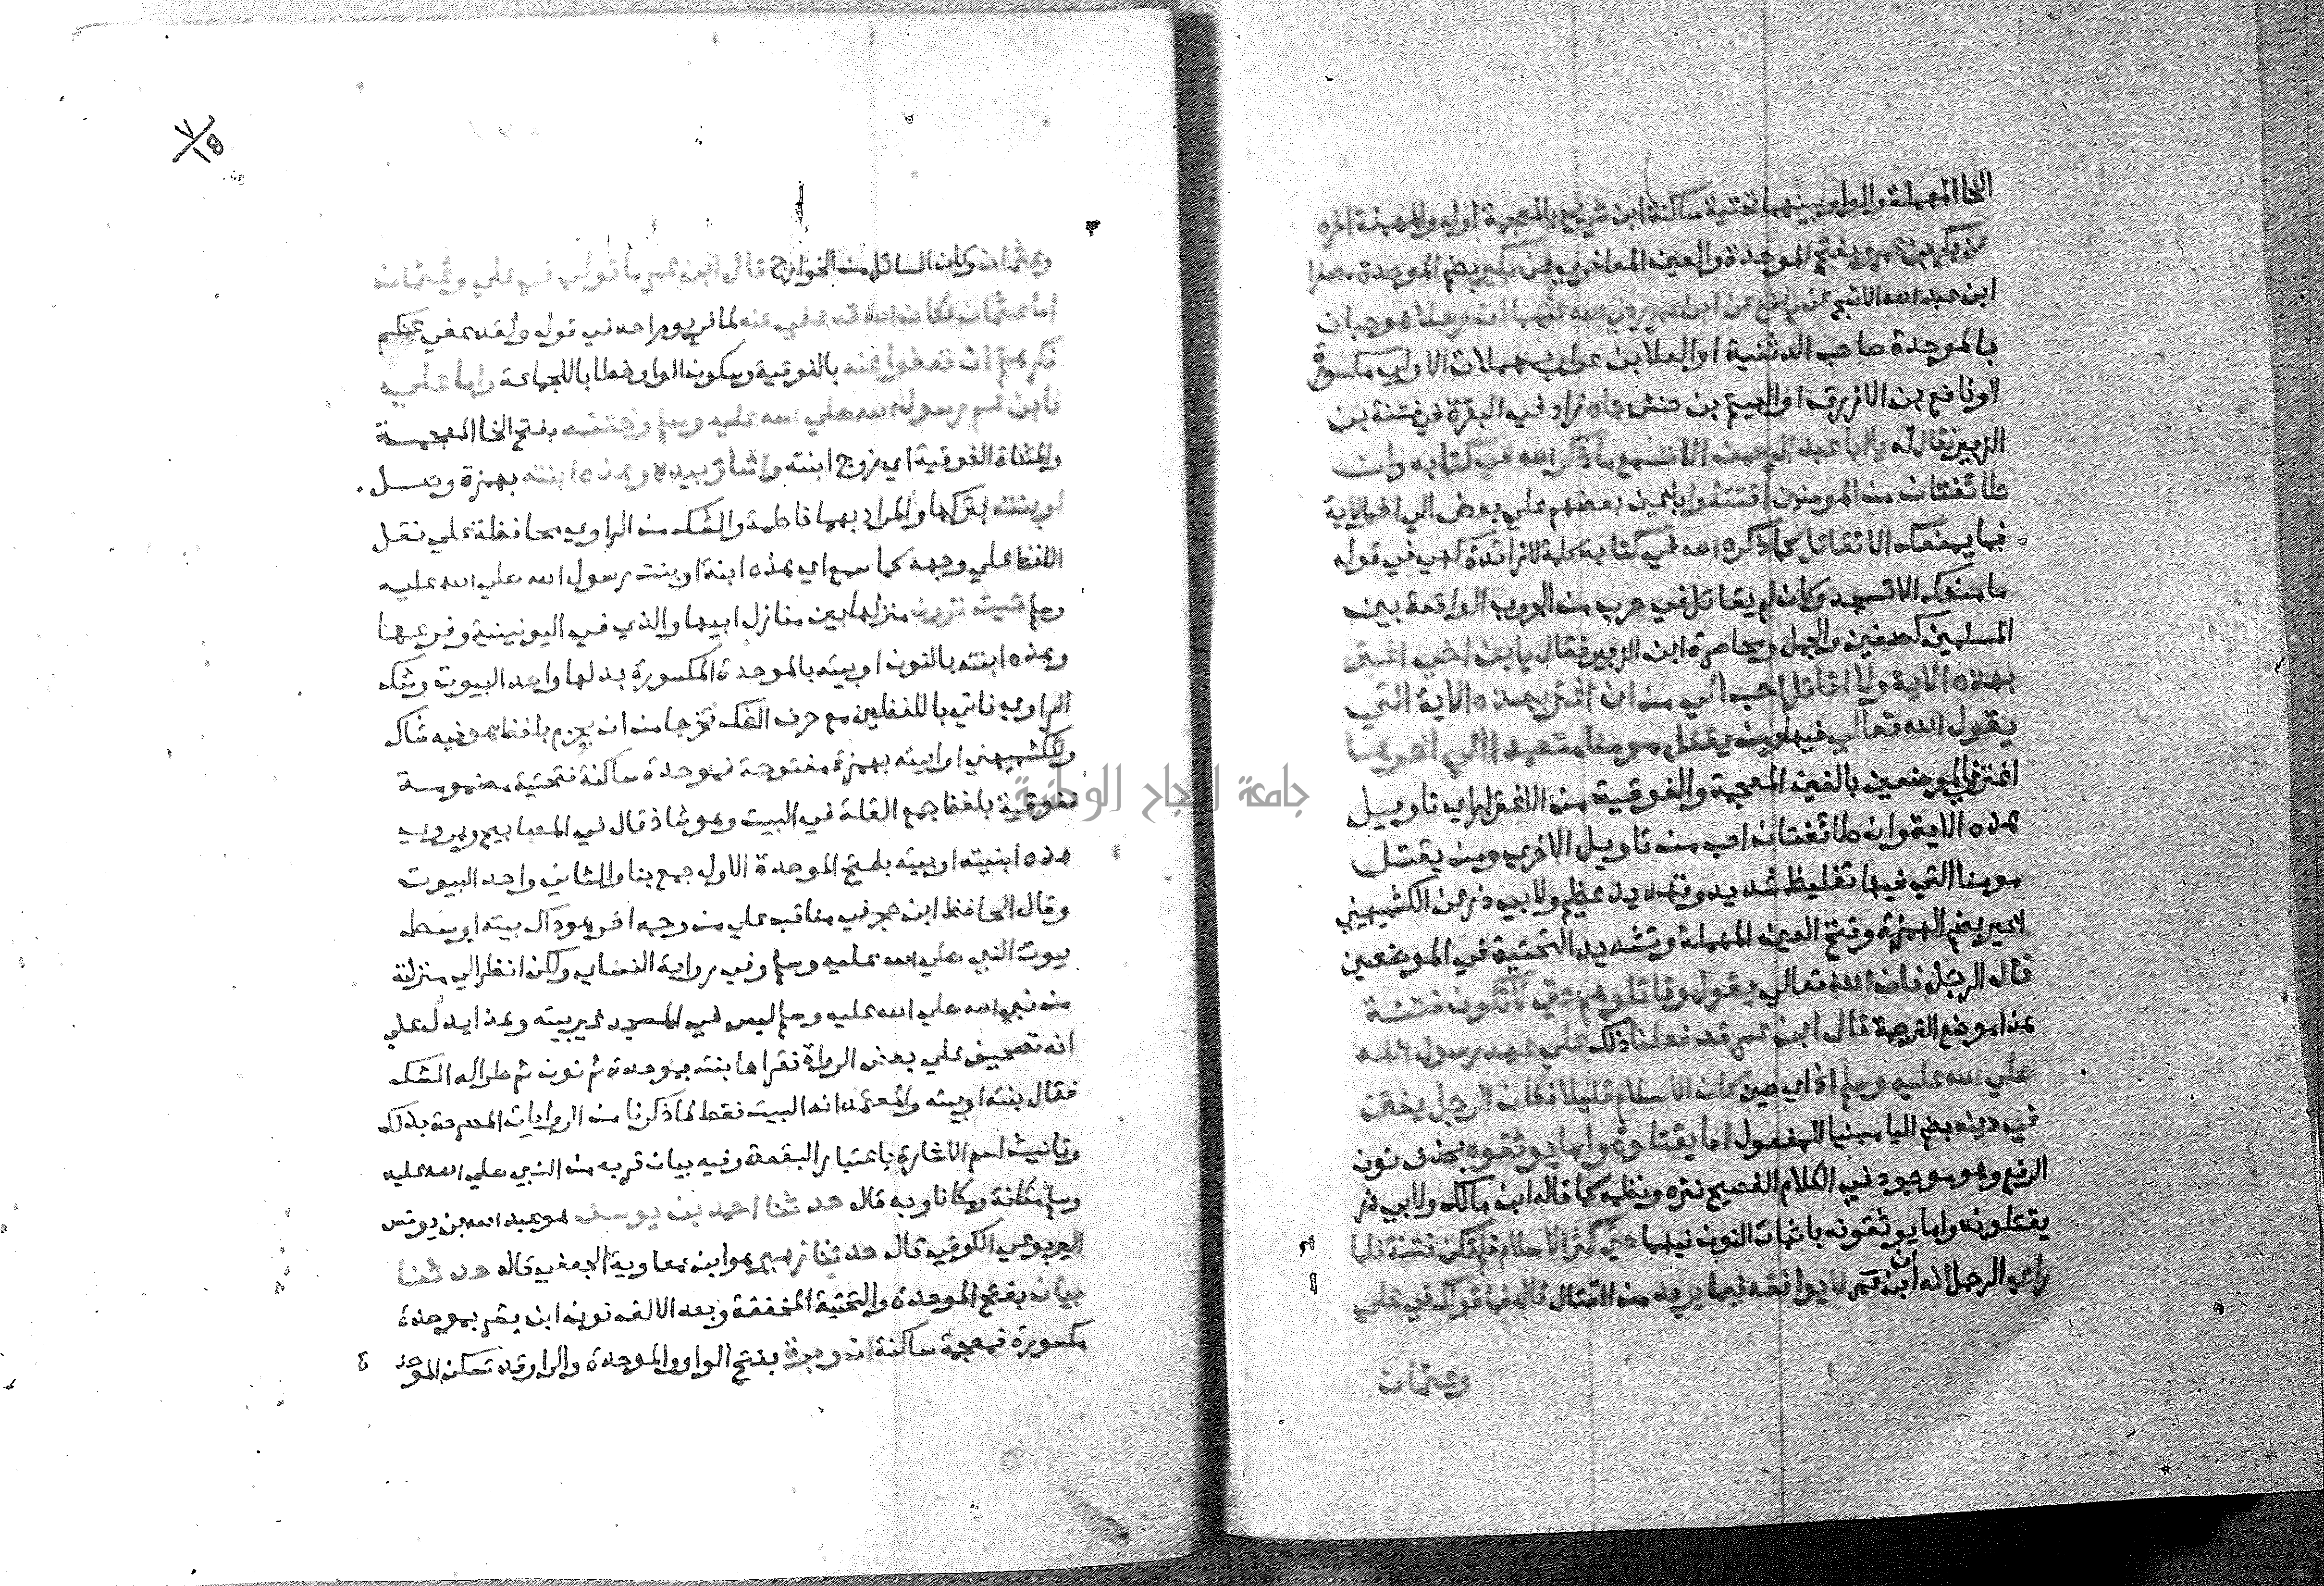 الحا المهملة والواو بينهما تحتية ساكنة ابن شريح بالمعجمة اوله والمهملة اخره
عن بكر بن عمرو بفتح الموحدة والعين المعافري عن بكير بضم الموحدة مصغرا
ابن عبد الله الاشج عن نافع عن ابن عمر رضي الله عنهما ان رجلا هو حبان
بالموحدة صاحب الدثنية او العلا بن عرار بمهملات الاولي مكسورة
او نافع بن الازرق او الهيثم بن حنش جاه زاد في البقرة في فتنة بن
الزبير فقال له يا ابا عبد الرحمن الا تسمع ما ذكر الله في كتابه وان
طائفتان من المومنين اقتتلوا باغين بعضهم علي بعض الي اخر الاية
فما يمنعك الا تقاتل كما ذكره الله في كتابه كلمة لا زائدة كهي في قوله
ما منعك الا تسجد وكان لم يقاتل في حرب من الحروب الواقعة بين
المسلمين كصفين والجمل ومحاصرة ابن الزبير فقال يا بن اخي اغتر
بهذه الاية ولا اقاتل احب الي من ان اغتر بهذه الاية التي
يقول الله تعالي فيها ومن يقتل مومنا متعمدا الي اخرها
اغتر في الموضعين بالغين المعجمة والفوقية من الاغترار اي تاويل
هذه الاية وان طائفتان احب من تاويل الاخري ومن يقتل
مومنا التي فيها تغليظ شديد وتهديد عظيم ولابي ذر عن الكشميهني
اعير بضم الهمزة وفتح العين المهملة وتشديد التحتية في الموضعين
قال الرجل فان الله تعالي يقول وقاتلوهم حتي لا تكون فتنة
هذا موضع الترجمة قال ابن عمر قد فعلنا ذلك علي عهد رسول الله
صلي الله عليه وسلم اذ اي حين كان الاسلام قليلا فكان الرجل يفتن
في دينه بضم اليا مبنيا للمفعول اما يقتلوه واما يوثقوه بحذف نون
الرفع وهو موجود في الكلام الفصيح نثره ونظمه كما قاله ابن مالك ولابي ذر
يقتلونه واما يوثقونه باثبات النون فيهما حتي كثر الاسلام فلم تكن فتنة فلما
راي الرجل انه اي ابن عمر لا يوافقه فيما يريد من القتال قال فما قولك في علي
وعثمان
وعثمان وكان السائل من الخوارج قال ابن عمر ما قولي في علي وعثمان
اما عثمان فكان الله قد عفي عنه لما فر يوم احد في قوله ولقد عفي عنكم
فكرهتم ان تعفوا عنه بالفوقية وسكون الواو خطابا للجماعة واما علي
فابن عم رسول الله صلي الله عليه وسلم وختنه بفتح الخا المعجمة
والمثناة الفوقية اي زوج ابنته واشار بيده وهذه ابنته بهمزة وصل
او بنته بتركها والمراد بهما فاطمة والشك من الراوي محافظة علي نقل
اللفظ علي وجهه كما سمع اي هذه ابنة او بنت رسول الله صلي الله عليه
وسلم حيث ترون منزلها بين منازل ابيها والذي في اليونينية وفرعها
وهذه ابنته بالنون او بيته بالموحدة المكسورة بدلها واحد البيوت وشك
الراوي فاتي باللفظين مع حرف الشك تحرجا من ان يجزم بلفظ هو فيه شاك
وللكشميهني او ابيته بهمزة مفتوحة فموحدة ساكنة فتحتية مضمومة
ففوقية بلفظ جمع القلة في البيت وهو شاذ قال في المصابيح ويروي
هذه ابنيته او بيته بفتح الموحدة الاول جمع بنا والثاني واحد البيوت
وقال الحافظ ابن حجر في مناقب علي من وجه اخر هو ذاك بيته اوسط
بيوت النبي صلي الله عليه وسلم وفي رواية النساي ولكن انظر الي منزلته
من نبي الله صلي الله عليه وسلم ليس في المسجد غير بيته وهذا يدل علي
انه تصحيف علي بعض الرواة فقراها بنته بموحدة ثم نون ثم طرا له الشك
فقال بنته او بيته والمعتمد انه البيت فقط لما ذكرنا من الروايات المصرحة بذلك
وتانيث اسم الاشارة باعتبار البقعة وفيه بيان قربه من النبي صلي الله عليه
وسلم مكانة ومكانا وبه قال حدثنا احمد بن يونس هو عبد الله بن يونس
اليربوعي الكوفي قال حدثنا زهير هو ابن معاوية الجعفي قال حدثنا
بيان بفتح الموحدة والتحتية المخففة وبعد الالف نون ابن بشر بموحدة
مكسورة فمعجمة ساكنة ان وبرة بفتح الواو والموحدة والرا وقد تسكن الموحد
جامعة النجاح الوطنية